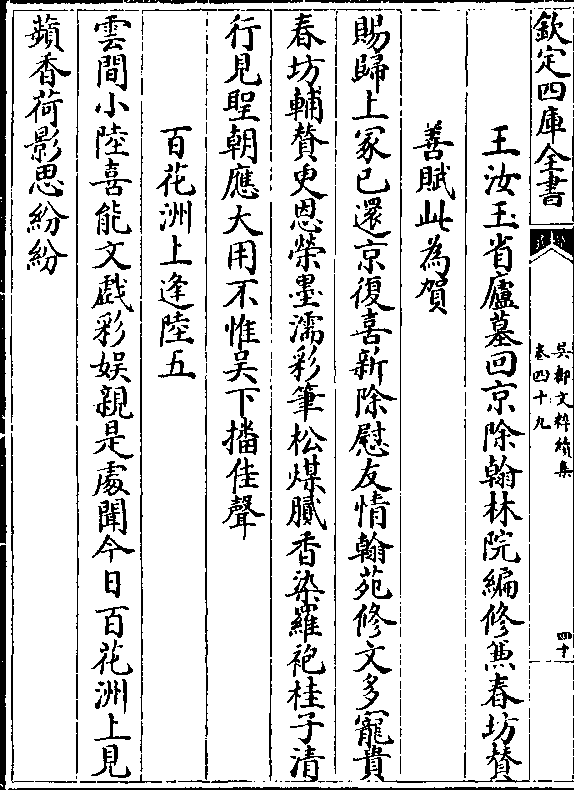 欽定四庫全書
吳都文粹續集
卷四十九
四十
王汝玉省廬墓回京除翰林院編修兼春坊賛
善賦此為賀
賜歸上冢已還京復喜新除慰友情翰苑修文多寵貴
春坊輔賛更恩榮墨濡彩筆松煤膩香染羅袍桂子清
行見聖朝應大用不惟吴下播佳聲
百花洲上逢陸五
雲間小陸喜能文戲彩娱親是處聞今日百花洲上見
蘋香荷影思紛紛